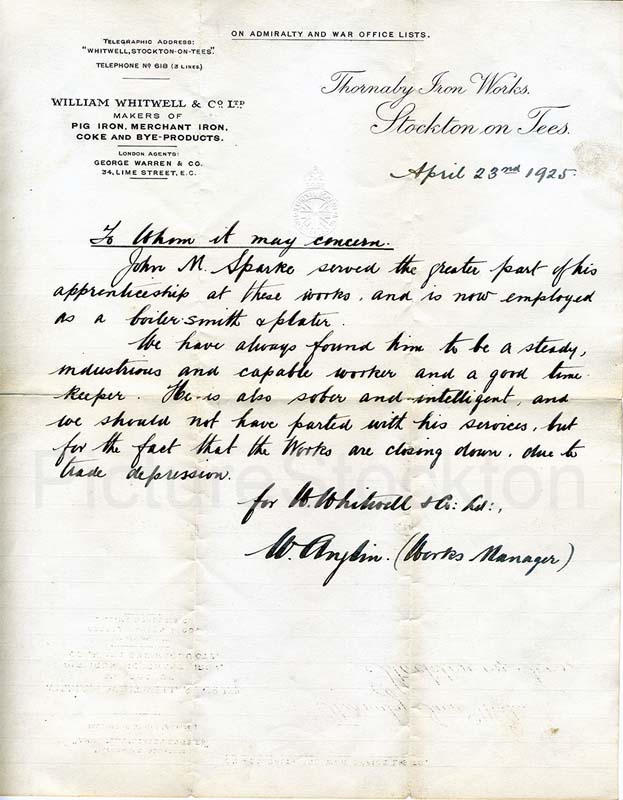 ON ADMIRALTY AND WAR OFFICE LISTS.
TELEGRAPHIC ADDRESS:
"WHITWELL, STOCKTON-ON-TEES".
TELEPHONE Nº 618 (3 LINES)
WILLIAM WHITWELL & Cº LTD
MAKERS OF
PIG IRON, MERCHANT IRON,
COKE AND BYE-PRODUCTS.
LONDON AGENTS:
GEORGE WARREN & CO.
34, LIME STREET, E.C.
Thornaby Iron Works.
Stockton on Tees.
April 23nd 1925.
To Whom it may concern.
John M. Sparke served the greater part of his
apprenticeship at these works, and is now employed
as a boiler-smith & plater.
We have always found him to be a steady,
industrious and capable worker and a good time-
keeper. He is also sober and intelligent, and
we should not have parted with his services, but
for the fact that the Works are closing down, due to
trade depression.
for W. Whitwell & Co: Ltd:,
W. Anglin. (Works Manager)
PictureStockton